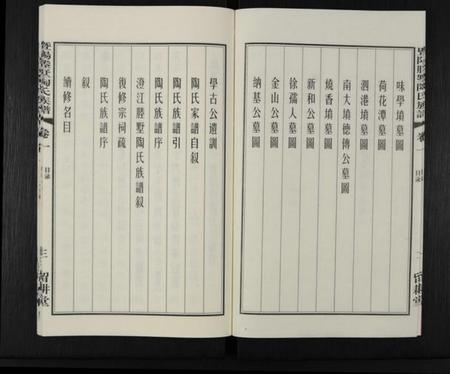 味學墳墓圖
荷花潭墓圖
泗港墳墓圖
南大墳德傳公墓圖
燒香墳墓圖
新和公墓圖
徐孺人墓圖
金山公墓圖
納基公墓圖
卷一
目錄
學古公遺訓
陶氏家譜自叙
陶氏族譜引
陶氏族譜序
澄江塍墅陶氏族譜叙
復修宗祠疏
陶氏族譜序
叙
續修名目
暨陽塍墅陶氏族譜
卷一
目錄
三
留耕堂